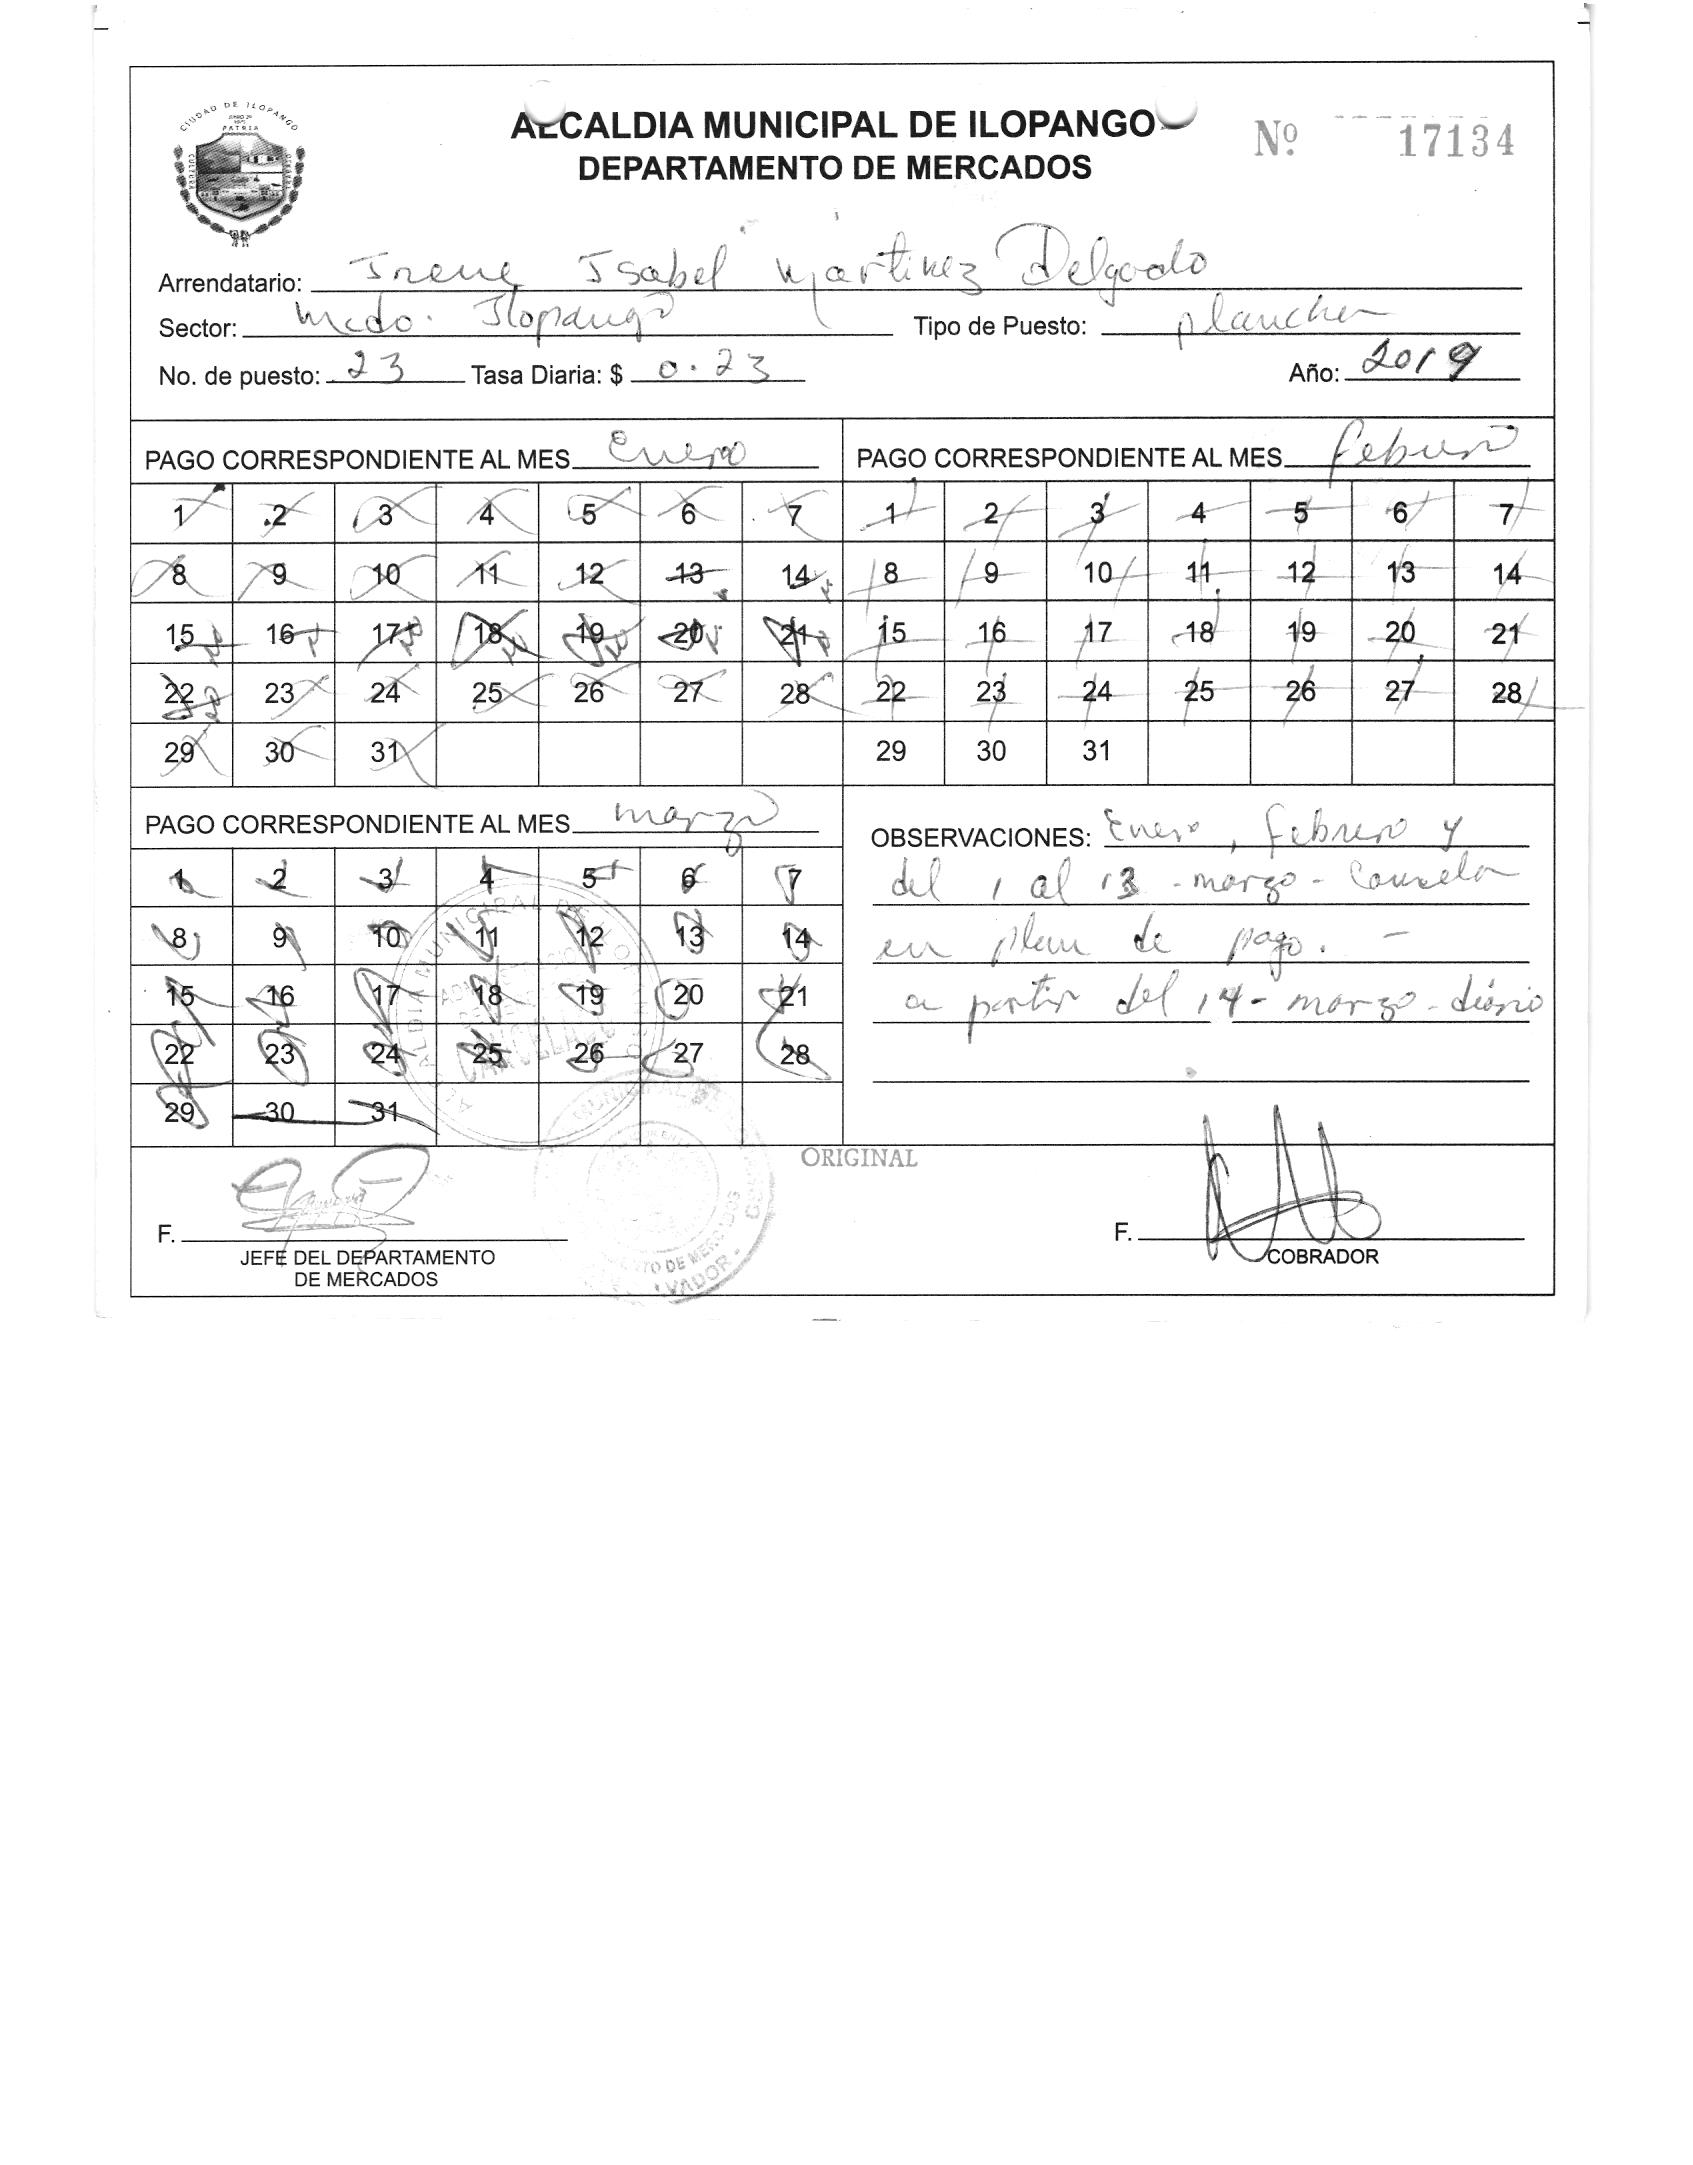 CIUDAD DE ILOPANGO
PATRIA
ALCALDIA MUNICIPAL DE ILOPANGO
DEPARTAMENTO DE MERCADOS
Nº 17134
Arrendatario: Irene Isabel Martinez Delgado
Sector: Mcdo. Ilopango Tipo de Puesto: plancha
No. de puesto: 23 Tasa Diaria: $ 0.23 Año: 2019
PAGO CORRESPONDIENTE AL MES Enero
1 2 3 4 5 6 7
8 9 10 11 12 13 14
15 16 17 18 19 20 21
22 23 24 25 26 27 28
29 30 31
PAGO CORRESPONDIENTE AL MES Febrero
1 2 3 4 5 6 7
8 9 10 11 12 13 14
15 16 17 18 19 20 21
22 23 24 25 26 27 28
29 30 31
PAGO CORRESPONDIENTE AL MES marzo
1 2 3 4 5 6 7
8 9 10 11 12 13 14
15 16 17 18 19 20 21
22 23 24 25 26 27 28
29 30 31
OBSERVACIONES: Enero, febrero y
del 1 al 13 - marzo - Cancela
en plan de pago. -
a partir del 14 - marzo - diario
CANCELADO
ORIGINAL
F.
JEFE DEL DEPARTAMENTO
DE MERCADOS
F.
COBRADOR